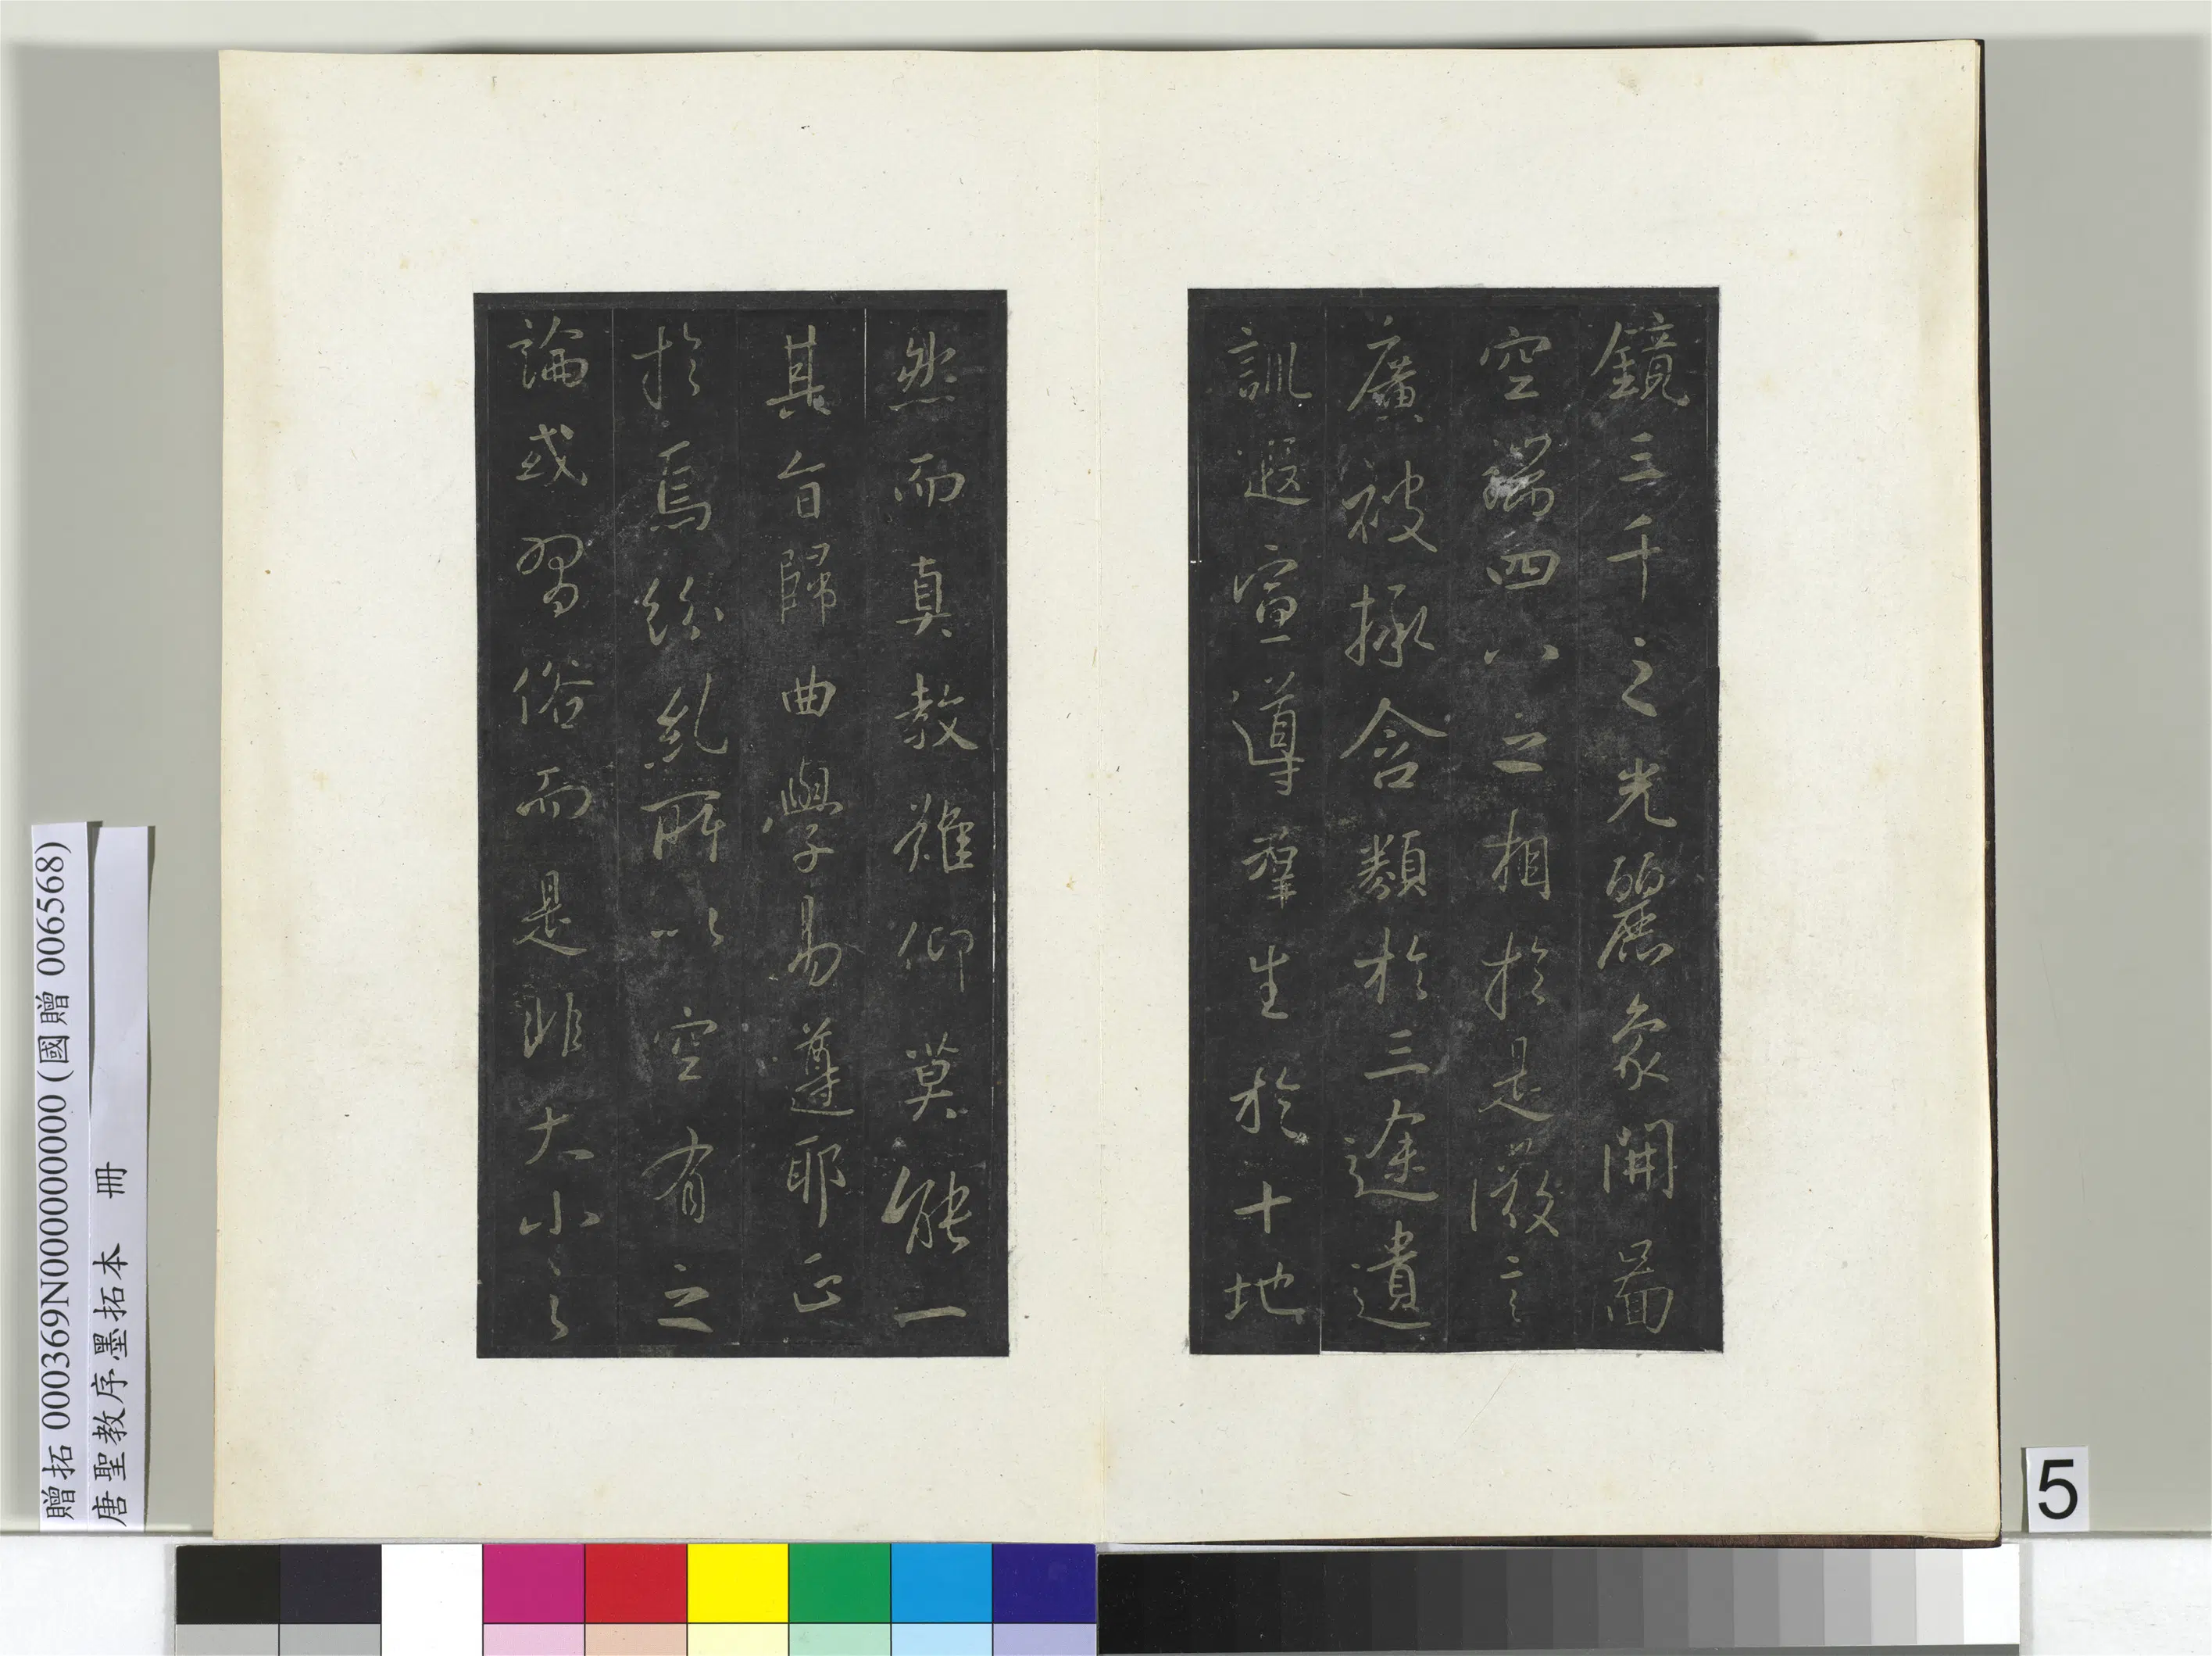 鏡三千之光麗象開圖
空端四八之相於是微言
廣被拯含類於三途遺
訓遐宣導群生於十地
然而真教難仰莫能一
其旨歸曲學易遵耶正
於焉紛糺所以空有之
論或習俗而是非大小之
贈拓 000369N000000000 (國贈 006568)
唐聖教序墨拓本 冊
5